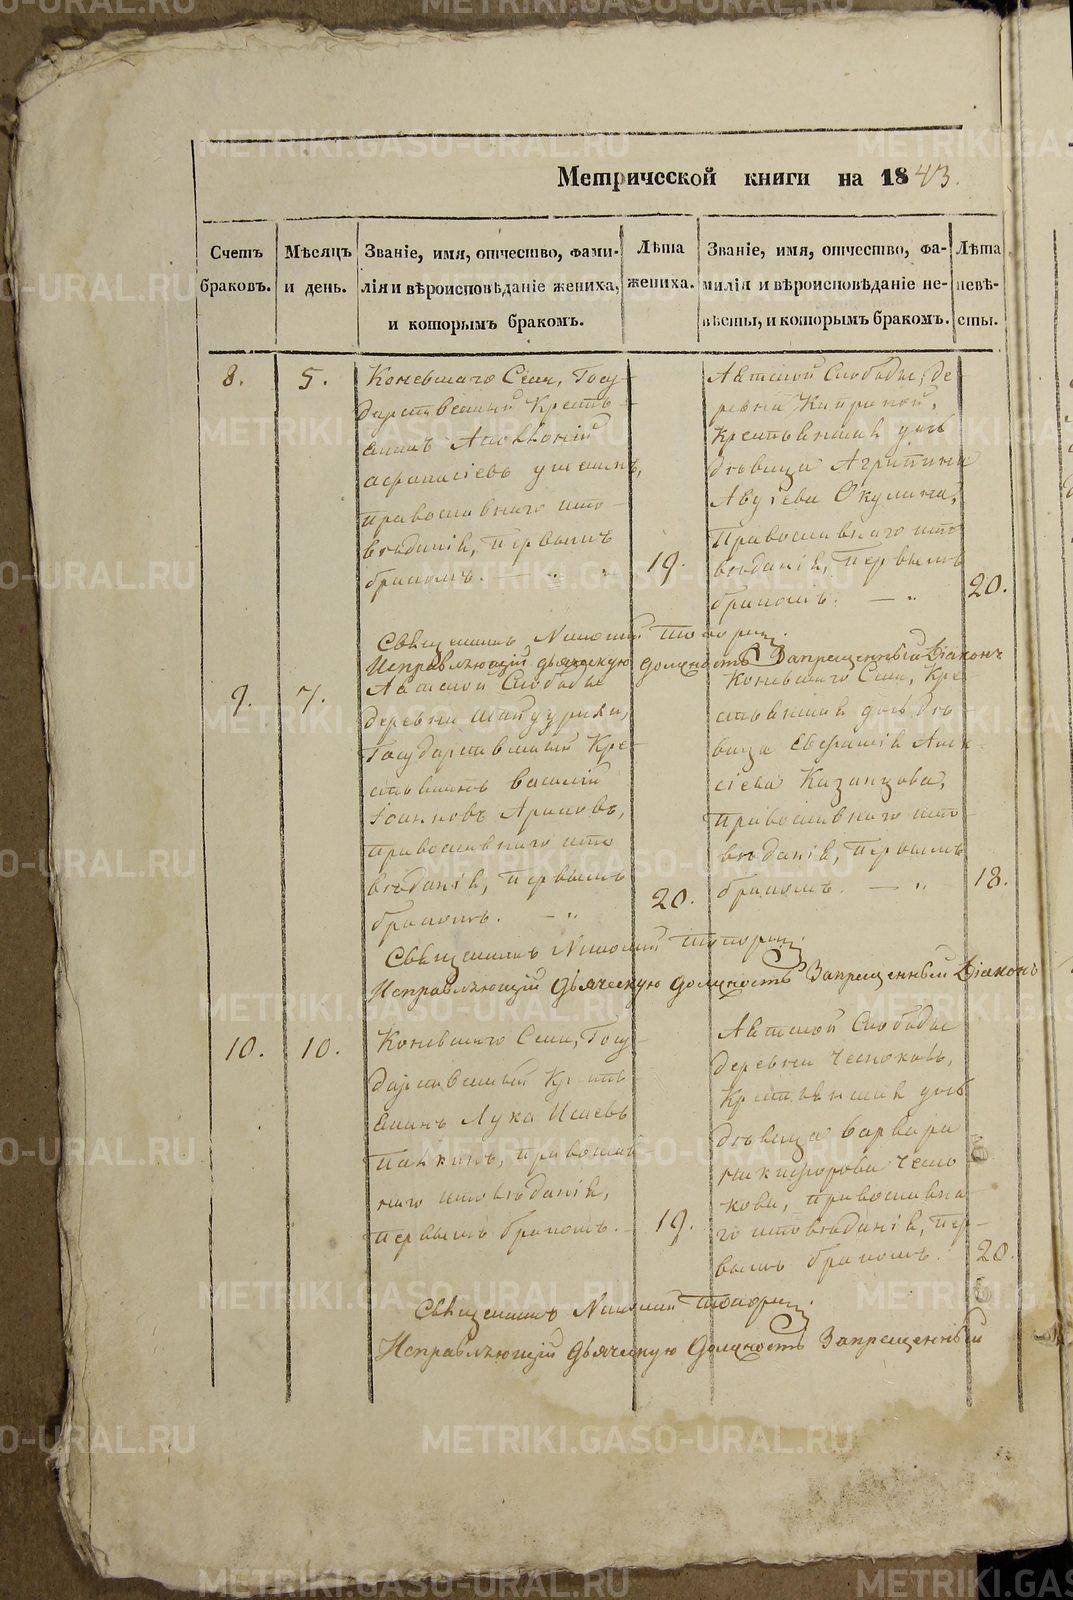 Метрической книги на 1843.
Счетъ браковъ.
Мѣсяцъ и день.
Званіе, имя, отчество, фами-
лія и вѣроисповѣданіе жениха,
и которымъ бракомъ.
Лѣта
жениха.
Званіе, имя, отчество, фа-
милія и вѣроисповѣданіе не-
вѣсты, и которымъ бракомъ.
Лѣта
невѣ-
сты.
8.
5.
Коневскаго Села, Госу-
дарственный Кресть-
янинъ
Афанасіевъ
православнаго испо-
вѣданія, первымъ
бракомъ.
19.
Аятской Слободы, де-
ревни
Крестьянская дочь
дѣвица Агрипина
Окулина,
Православнаго испо-
вѣданія, Первымъ
бракомъ.
20.
Священникъ Николай Топорки
Исправляющій дьяческую должность Запрещенный Діаконъ
9.
7.
Аятской Слободы
деревни
Государственный Кре-
стьянинъ Василій
Іоанновъ
православнаго испо
вѣданія, первымъ
бракомъ.
20.
Коневскаго Села, Кре-
стьянская дочь дѣ-
вица Евфимія Алек-
сіева Казанцова,
православнаго испо-
вѣданія, первымъ
бракомъ.
18.
Священникъ Николай Топорки
Исправляющій дьяческую должность Запрещенный Діаконъ
10.
10.
Коневскаго Села, Госу-
дарственный Кресть-
янинъ Лука Исаевъ
Панкинъ, православ-
наго исповѣданія,
первымъ бракомъ.
19.
Аятской Слободы
деревни Чесноковы,
Крестьянская дочь
дѣвица Варвара
Никифорова Чесно
кова, православна-
го исповѣданія, пер-
вымъ бракомъ.
20.
Священникъ Николай Топорки
Исправляющій дьяческую должность Запрещенный
METRIKI.GASO-URAL.RU